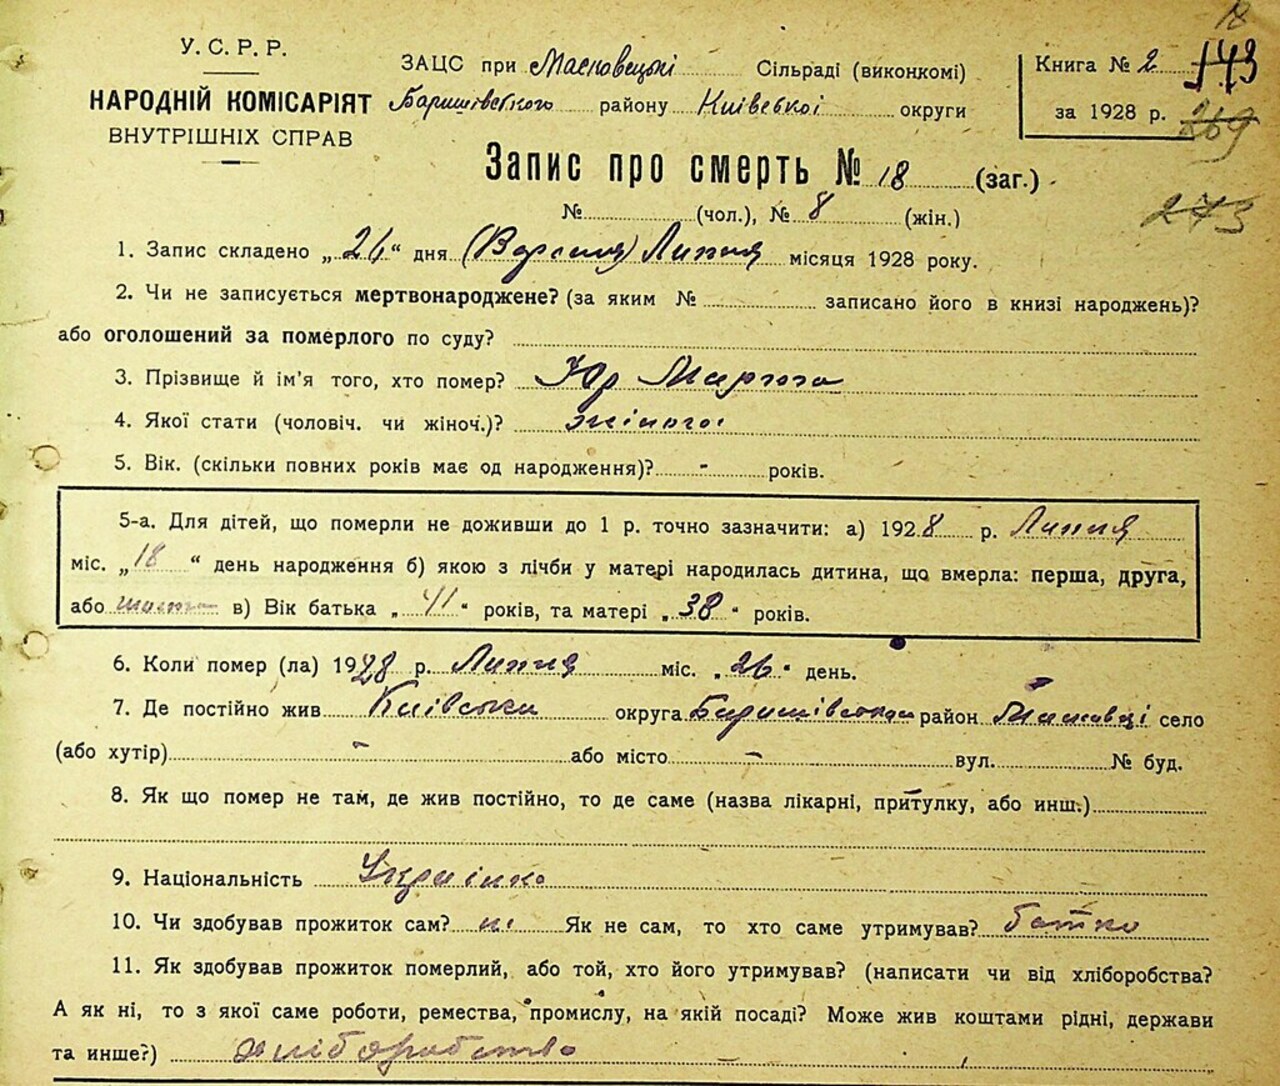 18
У. С. Р. Р.
НАРОДНІЙ КОМІСАРІЯТ
ВНУТРІШНІХ СПРАВ
ЗАЦС при Масковецькі Сільраді (виконкомі)
Баришівського району Київської округи
Книга № 2 143
за 1928 р. 269
273
Запис про смерть № 18 (заг.)
№ (чол.), № 8 (жін.)
1. Запис складено „26“ дня Липня місяця 1928 року.
2. Чи не записується мертвонароджене? (за яким № записано його в книзі народжень)?
або оголошений за померлого по суду?
3. Прізвище й ім'я того, хто помер? Юр Марта
4. Якої стати (чоловіч. чи жіноч.)? жіночої
5. Вік. (скільки повних років має од народження)? - років.
5-а. Для дітей, що померли не доживши до 1 р. точно зазначити: а) 1928 р. Липня
міс. „18“ день народження б) якою з лічби у матері народилась дитина, що вмерла: перша, друга,
або шоста в) Вік батька „41“ років, та матері „38“ років.
6. Коли помер (ла) 1928 р. Липня міс. „26“ день.
7. Де постійно жив Київська округа Баришівський район Масківці село
(або хутір) - або місто - вул. № буд.
8. Як що помер не там, де жив постійно, то де саме (назва лікарні, притулку, або инш.)
9. Національність Українка
10. Чи здобував прожиток сам? ні Як не сам, то хто саме утримував? батко
11. Як здобував прожиток померлий, або той, хто його утримував? (написати чи від хліборобства?
А як ні, то з якої саме роботи, ремества, промислу, на якій посаді? Може жив коштами рідні, держави
та инше?) хліборобство